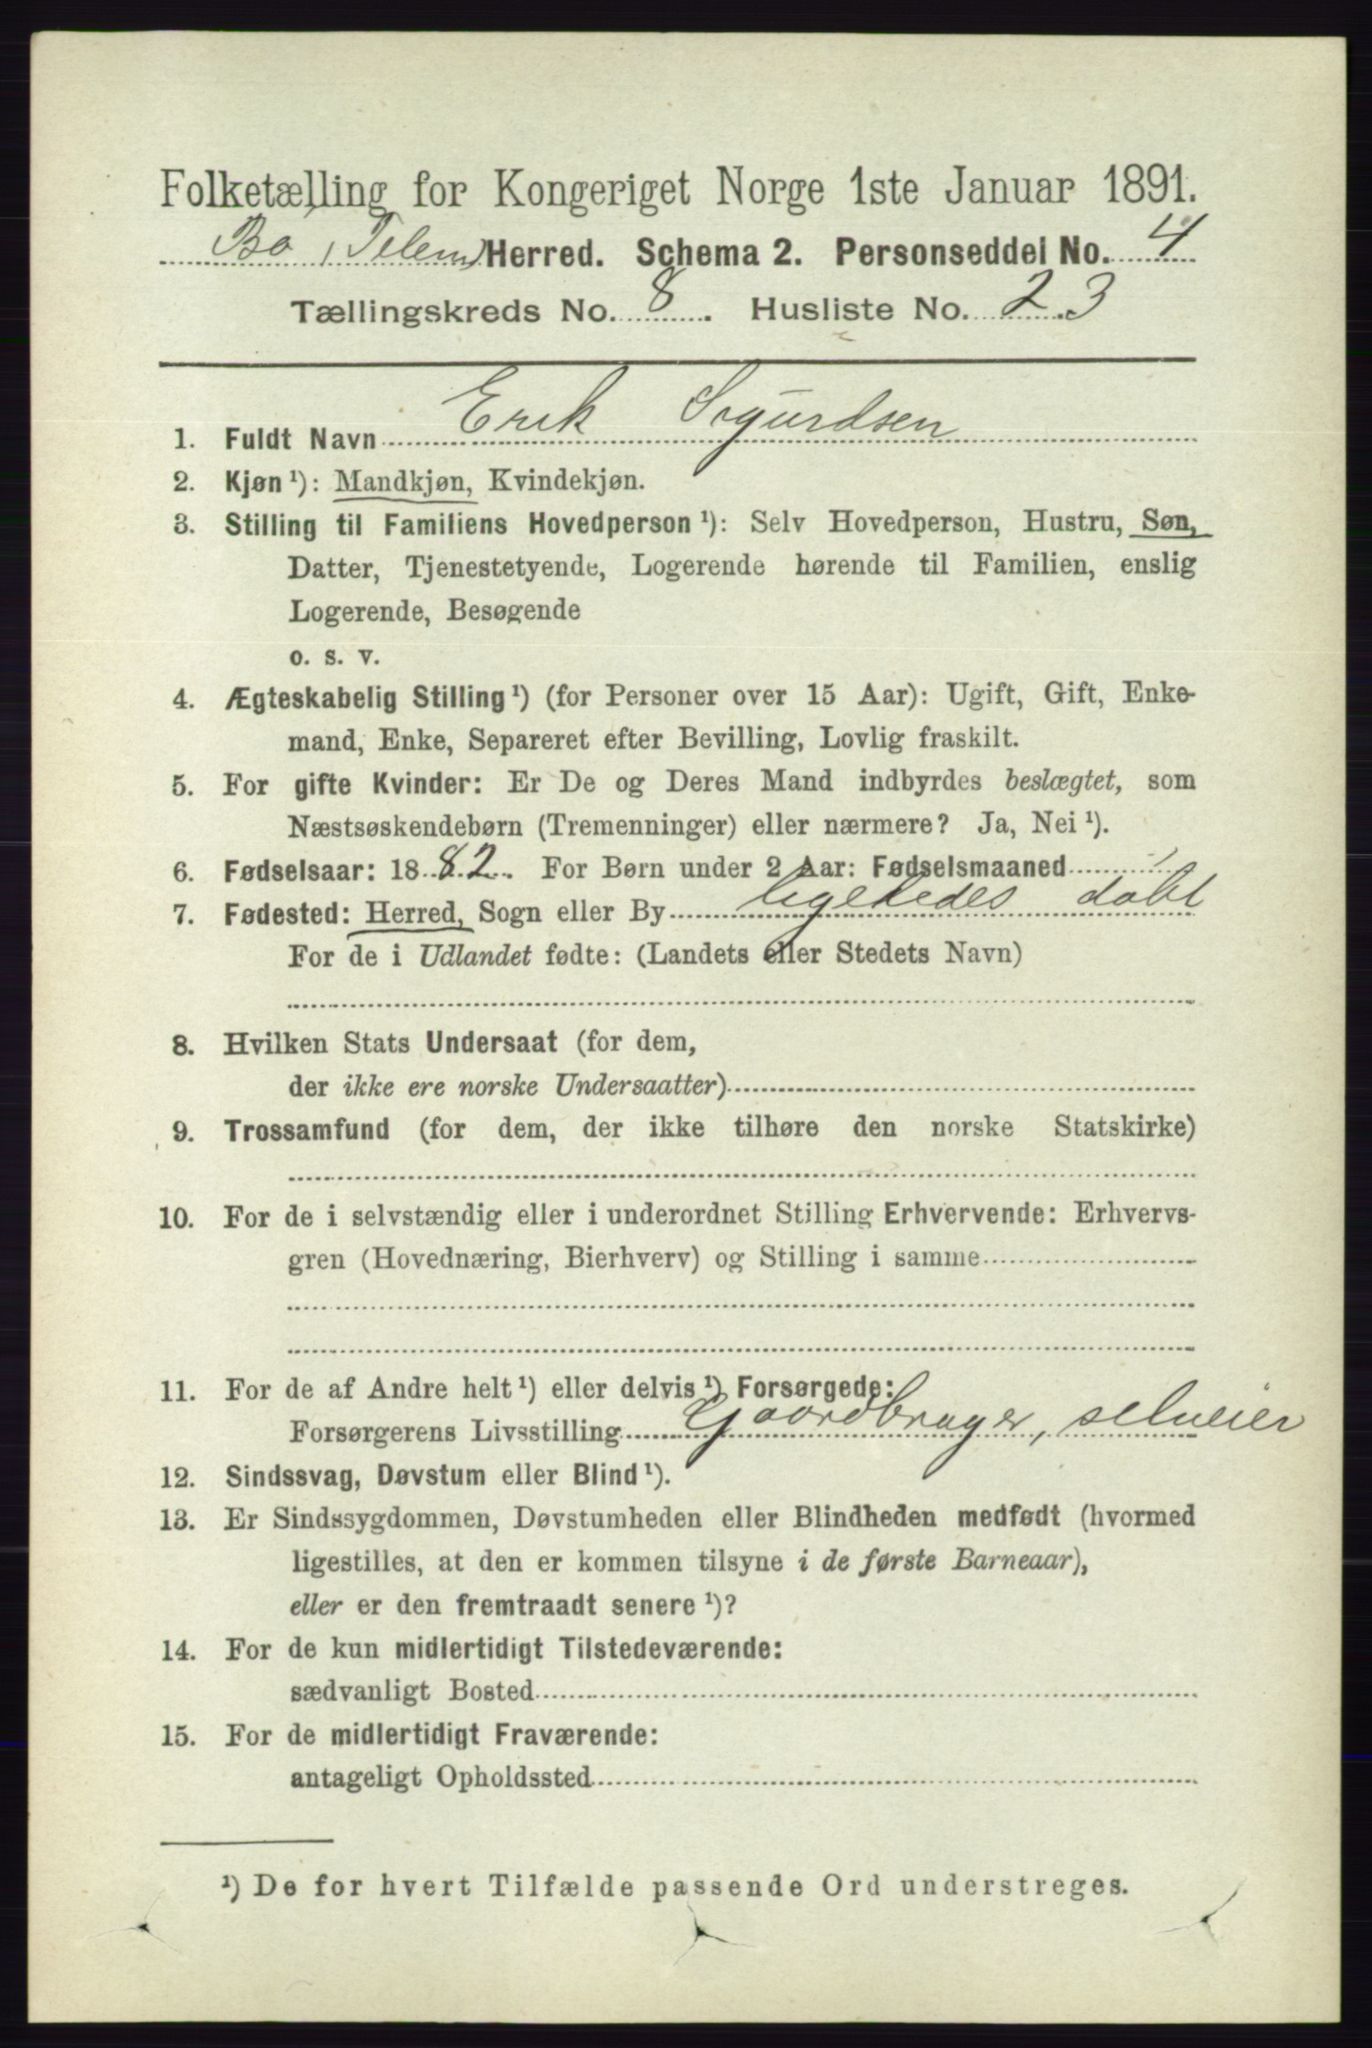 Folketælling for Kongeriget Norge 1ste Januar 1891.
Bø, Telem Herred. Schema 2. Personseddel No. 4
Tællingskreds No. 8. Husliste No. 23
1. Fuldt Navn Erik Sigurdsen
2. Kjøn ¹): Mandkjøn, Kvindekjøn.
3. Stilling til Familiens Hovedperson ¹): Selv Hovedperson, Hustru, Søn,
Datter, Tjenestetyende, Logerende hørende til Familien, enslig
Logerende, Besøgende
o. s. v.
4. Ægteskabelig Stilling ¹) (for Personer over 15 Aar): Ugift, Gift, Enke-
mand, Enke, Separeret efter Bevilling, Lovlig fraskilt.
5. For gifte Kvinder: Er De og Deres Mand indbyrdes beslægtet, som
Næstsøskendebørn (Tremenninger) eller nærmere? Ja, Nei ¹).
6. Fødselsaar: 1882. For Børn under 2 Aar: Fødselsmaaned
7. Fødested: Herred, Sogn eller By
For de i Udlandet fødte: (Landets eller Stedets Navn)
8. Hvilken Stats Undersaat (for dem,
der ikke ere norske Undersaatter)
9. Trossamfund (for dem, der ikke tilhøre den norske Statskirke)
10. For de i selvstændig eller i underordnet Stilling Erhvervende: Erhvervs-
gren (Hovednæring, Bierhverv) og Stilling i samme
11. For de af Andre helt ¹) eller delvis ¹) Forsørgede:
Forsørgerens Livsstilling Gaardbruger, selveier
12. Sindssvag, Døvstum eller Blind ¹).
13. Er Sindssygdommen, Døvstumheden eller Blindheden medfødt (hvormed
ligestilles, at den er kommen tilsyne i de første Barneaar),
eller er den fremtraadt senere ¹)?
14. For de kun midlertidigt Tilstedeværende:
sædvanligt Bosted
15. For de midlertidigt Fraværende:
antageligt Opholdssted
¹) De for hvert Tilfælde passende Ord understreges.